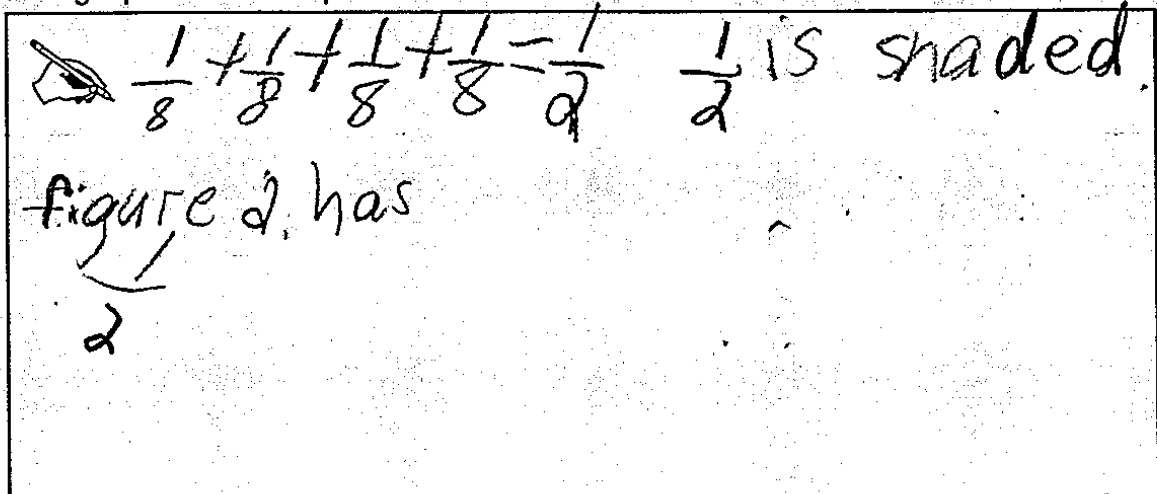 1/8 + 1/8 + 1/8 + 1/8 = 1/2 1/2 is shaded.
figure 2. has
1/2